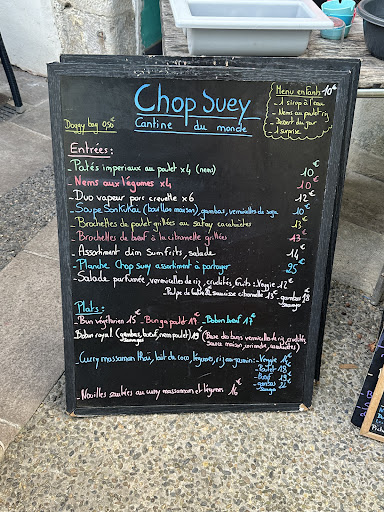 Chop Suey
Cantine du monde
Doggy bag 0,50€
Menu enfants 10€
- 1 sirop à l'eau
- Nems au poulet riz
- Dessert du jour
1 surprise
Entrées :
- Patés imperiaux au poulet x4 (nems) 10€
- Nems aux légumes x4 10€
- Duo vapeur porc crevette x6 12€
- Soupe (bouillon maison), gambas, vermicelles de soja 10€
- Brochettes de poulet grillées au satay cacahuètes 13€
- Brochettes de bœuf à la citronnelle grillées 13€
- Assortiment dim sum frits, salade 14€
- Planche Chop suey assortiment à partager 25€
- Salade parfumée, vermicelles de riz, crudités, fruits : Veggie 12€
citronnelle 15€ - gambas 18€
Plats :
- Bun végétarien 15€ - Bun ga poulet 17€ - Bobun bœuf 17€
Bobun royal (gambas, bœuf, nem poulet) 19€ (Base des buns vermicelles de riz, crudités,
sauce maison, coriandre, cacahuètes)
- Curry massaman thaï, lait de coco, légumes, riz jasmin : - Veggie 16€
- Poulet 18€
- Bœuf 19€
- gambas 22€
- Nouilles sautées au curry massaman et légumes 16€